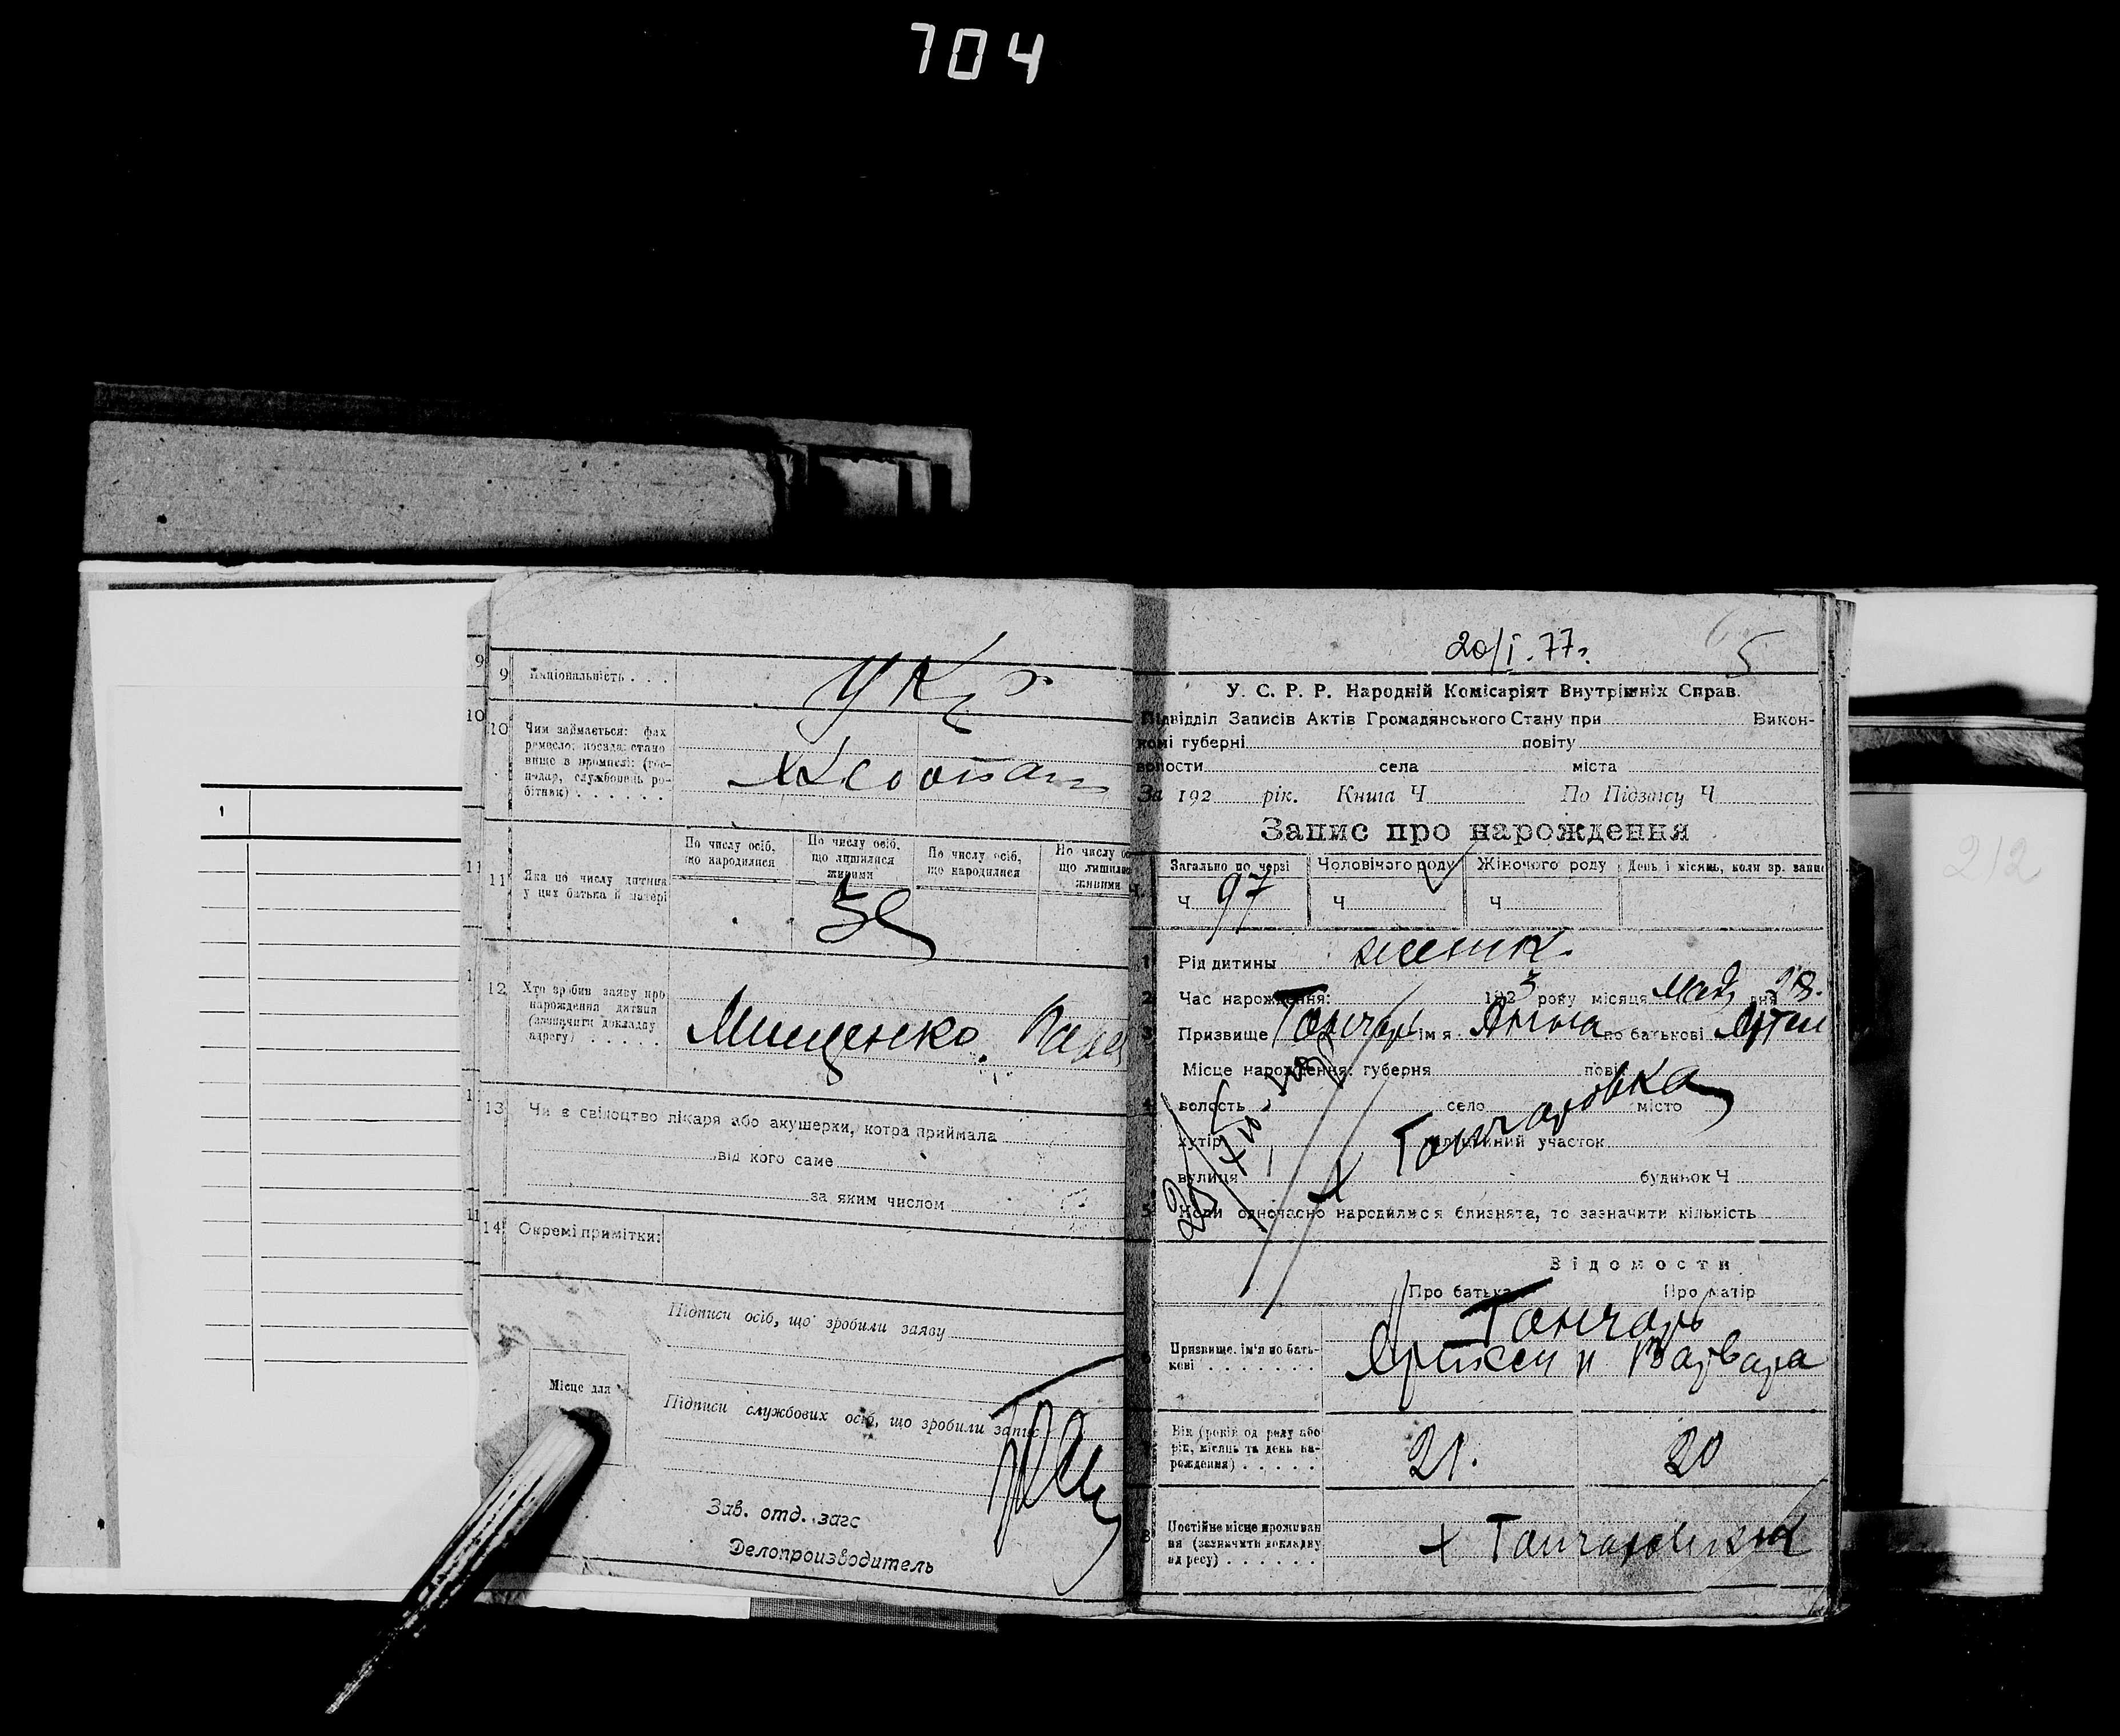 704
9
10
1
11
9 Національність . . .
Укр
10 Чим займається: фах
ремесло: посада: стано
вище в промислі: (гос-
подар, службовець ро-
бітник) . . . . . .
11 Яка по числу дитина
у цих батька й матері
По числу осіб,
що народилися
По числу осіб,
що лишилися
живими
По числу осіб,
що народилися
По числу ос
що лишили
живими
12 Хто зробив заяву про
народження дитини
(зазначити докладну
адресу) . . . . .
Мищенко.
13 Чи є свідоцтво лікаря або акушерки, котра приймала
від кого саме
за яким числом
14 Окремі примітки:
Підписи осіб, що зробили заяву
Місце для
Підписи службових осіб, що зробили запис
Зав. отд. загс
Делопроизводитель
20/I.77г.
5
У. С. Р. Р. Народній Комісаріят Внутрішніх Справ.
Підвідділ Записів Актів Громадянського Стану при Викон-
комі губерні повіту
волости села міста
За 192 рік. Книга Ч По Підзапису Ч
Запис про нарождення
Загально по черзі Чоловічого роду Жіночого роду День і місяць, коли зр. запис
Ч 97 Ч Ч
1 Рід дитини женск.
2 Час нарождення: 1923 року місяця мая дня 28.
3 Призвище Гончарь ім'я Анна по батькові Артем
Місце нарождення: губерня пові
4 волость село місто
Гончаровка
хутір участок
х
вулиця будинок Ч
5 Коли одночасно народилися близнята, то зазначити кількість
Відомости
Про батька Про матір
Гончарь
6 Призвище, ім'я по бать-
кові . . . . . . .
и Варвара
Вік (років од роду або
рік, місяць та день на-
рождення) . . . . .
21. 20
8 Постійне місце проживан
ня (зазначити докладну
адресу) . . . . . .
х Гончаровка
212